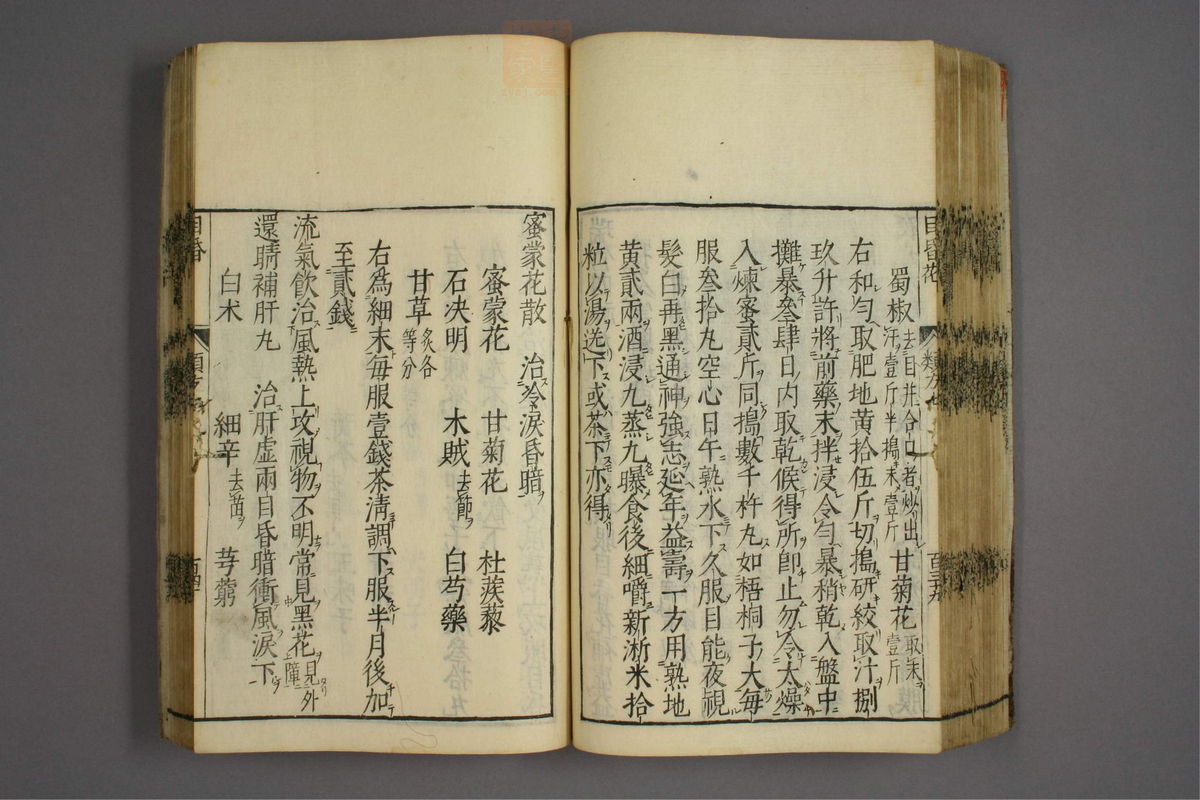 蜀椒去目幷合口者炒出汗壹斤半搗末壹斤甘菊花取末壹斤
右和勻取肥地黄拾伍斤切搗研絞取汁捌
玖升許將前藥末拌浸令勻暴稍乾入盤中
攤暴叄肆日內取乾候得所卽止勿令太燥
入煉蜜貳斤同搗數千杵丸如梧桐子大每
服叄拾丸空心日午熟水下久服目能夜視
髮白再黑通神強志延年益壽一方用熟地
黄貳兩酒浸九蒸九曝食後細嚼新淅米拾
粒以湯送下或茶下亦得
蜜蒙花散 治冷淚昏暗
蜜蒙花 甘菊花 杜蒺藜
石决明 木賊去節 白芍藥
甘草炙各等分
右爲細末每服壹錢茶淸調下服半月後加
至貳錢
流氣飲治風熱上攻視物不明常見黑花見外障
還睛補肝丸 治肝虚兩目昏暗衝風淚下
白术 細辛去苗 芎藭